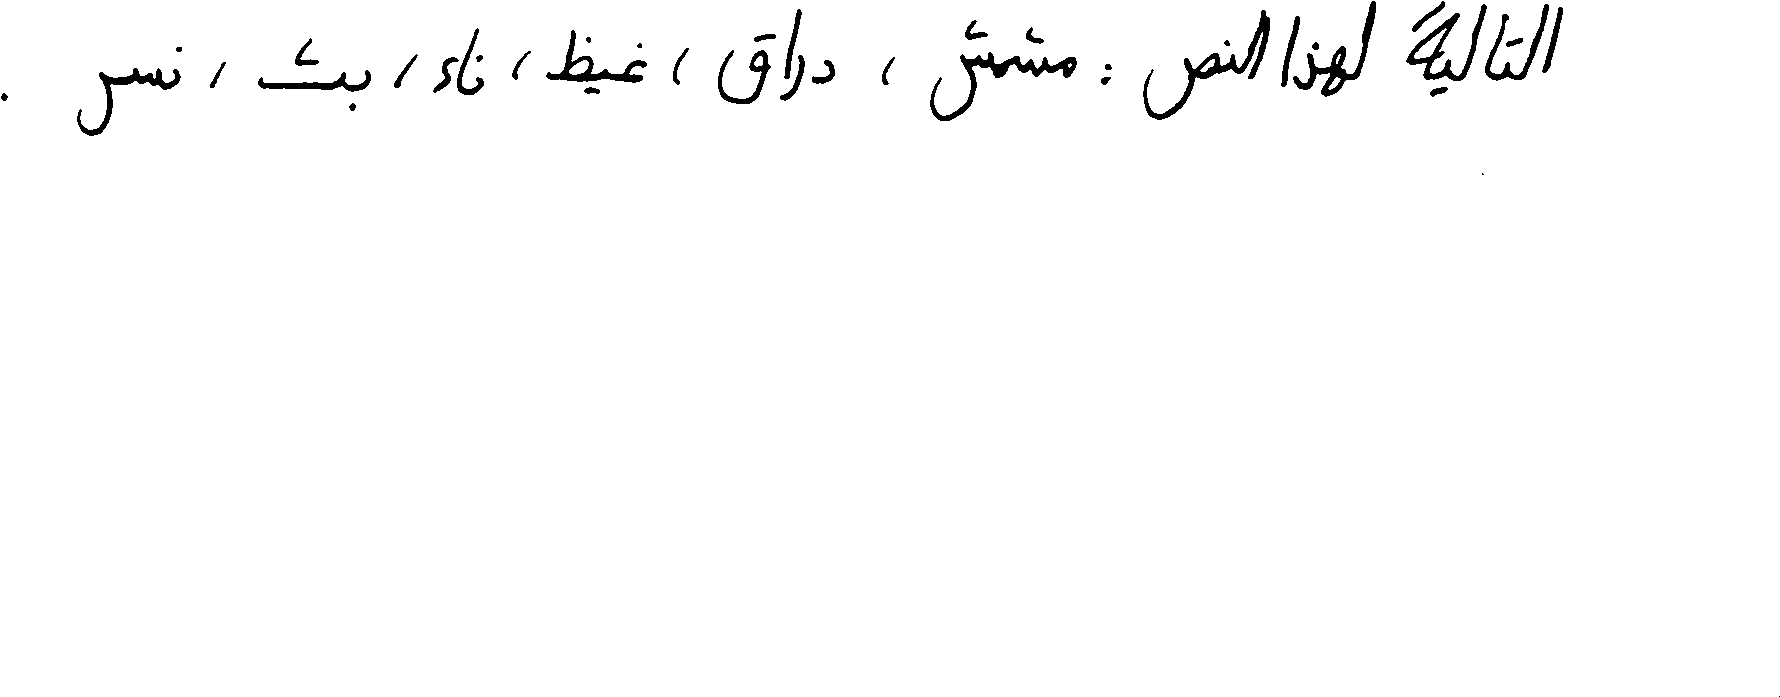 التالية لهذا النص : مشمش ، دراق ، غيظ ، ناء ، بث ، نسر .